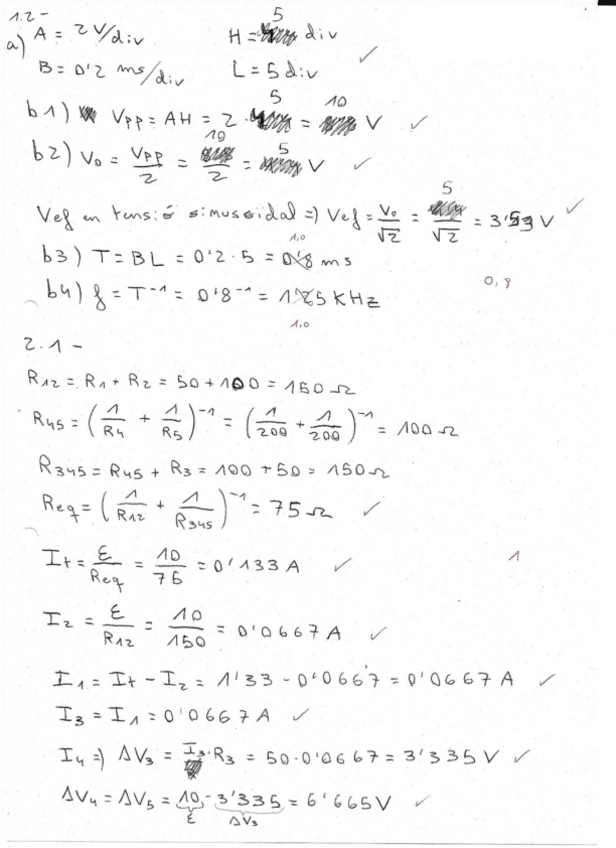 1.2-
a) A = 2 V/div H = 5 div ✓
B = 0'2 ms/div L = 5 div
b1) Vpp = AH = 2 · 5 = 10 V ✓
b2) V0 = Vpp/2 = 10/2 = 5 V ✓
Vef en tensió sinusoidal => Vef = V0/√2 = 5/√2 = 3'53 V ✓
b3) T = BL = 0'2 · 5 = 0'8 ms 1,0
b4) f = T⁻¹ = 0'8⁻¹ = 1'25 KHz 0,8
1,0
2.1-
R12 = R1 + R2 = 50 + 100 = 150 Ω
R45 = (1/R4 + 1/R5)⁻¹ = (1/200 + 1/200)⁻¹ = 100 Ω
R345 = R45 + R3 = 100 + 50 = 150 Ω
Req = (1/R12 + 1/R345)⁻¹ = 75 Ω ✓
It = ℇ/Req = 10/75 = 0'133 A ✓ 1
I2 = ℇ/R12 = 10/150 = 0'0667 A ✓
I1 = It - I2 = 1'33 - 0'0667 = 0'0667 A ✓
I3 = I1 = 0'0667 A ✓
I4 => ΔV3 = I3·R3 = 50·0'0667 = 3'335 V ✓
ΔV4 = ΔV5 = 10 - 3'335 = 6'665 V ✓
ℇ ΔV3